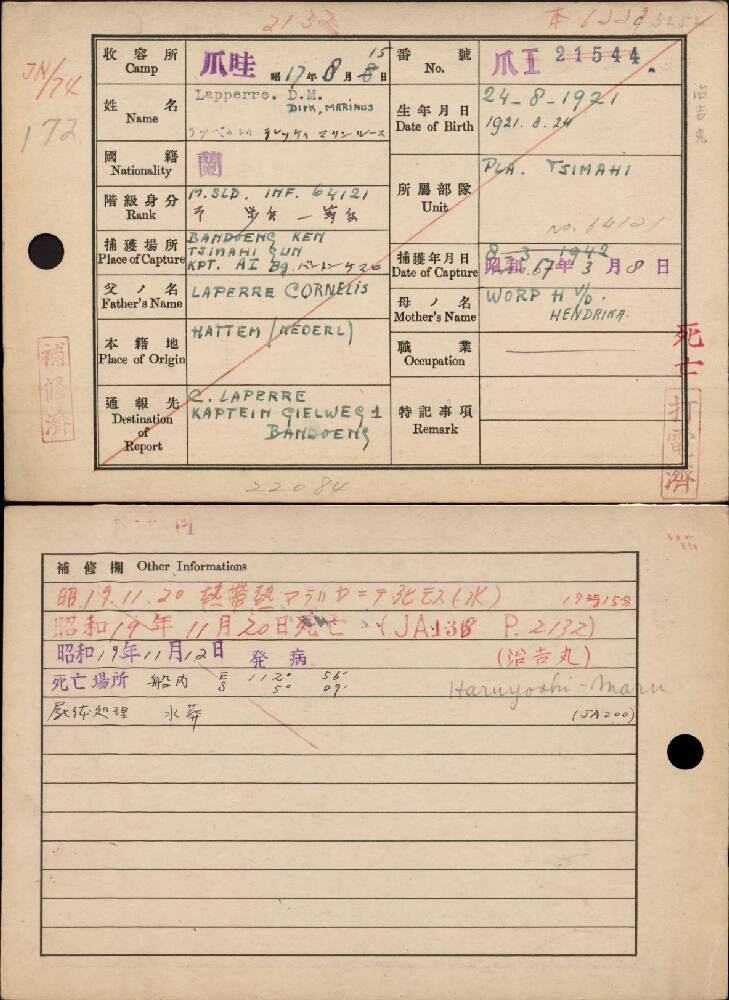 2132
本 6229
JN/74
172
収容所 Camp 爪哇 昭17年8月15日
番號 No. 爪I 21544
姓名 Name Lapperre. D.M.
DIRK, MARINUS
生年月日 Date of Birth 24-8-1921
1921.8.24
治吉丸
國籍 Nationality 蘭
所屬部隊 Unit PLA. TSIMAHI
No. 64121
階級身分 Rank M.SLD. INF. 64121
捕獲場所 Place of Capture BANDOENG KEN
TSIMAHI GUN
KPT. AI Bg.
捕獲年月日 Date of Capture 8-3-1942
昭和17年3月8日
父ノ名 Father's Name LAPERRE CORNELIS
母ノ名 Mother's Name WORP H V/D.
HENDRIKA.
本籍地 Place of Origin HATTEM (NEDERL)
職業 Occupation
死亡
通報先 Destination of Report C. LAPERRE
KAPTEIN GIELWEG 1
BANDOENG
特記事項 Remark
補修濟
打電濟
22084
補修欄 Other Informations
昭.19.11.20 熱帯熱マラリヤ 19時15分
昭和19年11月20日死亡 (JA138 P.2132)
昭和19年11月12日 発病 (治吉丸)
死亡場所 船内 E 112° 56′
S 5° 09′
Haruyoshi-Maru
屍体処理 水葬 (JA200)